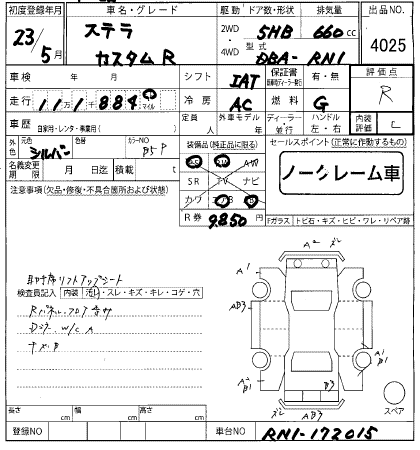 初度登録年月 車名・グレード 駆動 ドア数・形状 排気量 出品NO.
23/5月 ステラ カスタムR 2WD 4WD 5HB 660cc 4025
型式 DBA-RN1
車検 年 月 シフト IAT 保証書 有・無 評価点 R
走行 11万1千884 マイル 冷房 AC 燃料 G
車歴 自家用・レンタ・事業用( ) 定員 人 外車モデル 年 ディーラー・並行 ハンドル 左・右 内装評価 C
外色 元色 シルバー 色替 カラーNO
名義変更期限 月 日迄 積載 t
装備品(純正品に限る) セールスポイント(正常に作動するもの)
AW
SR TV ナビ
カワ B
ノークレーム車
R券 9850
Fガラス トビ石・キズ・ヒビ・ワレ・リペア跡
注意事項(欠品・修復・不具合箇所および状態)
助手席リフトアップシート
検査員記入 内装 汚し・スレ・キズ・キレ・コゲ・穴
Rパネル・フロア
Dドア W/C A
A2
A1
AB3
A1
B1
A2
B1
A1
B1
B3
AB3
スペア
長さ cm 幅 cm 高さ cm
登録NO 車台NO RN1-172015